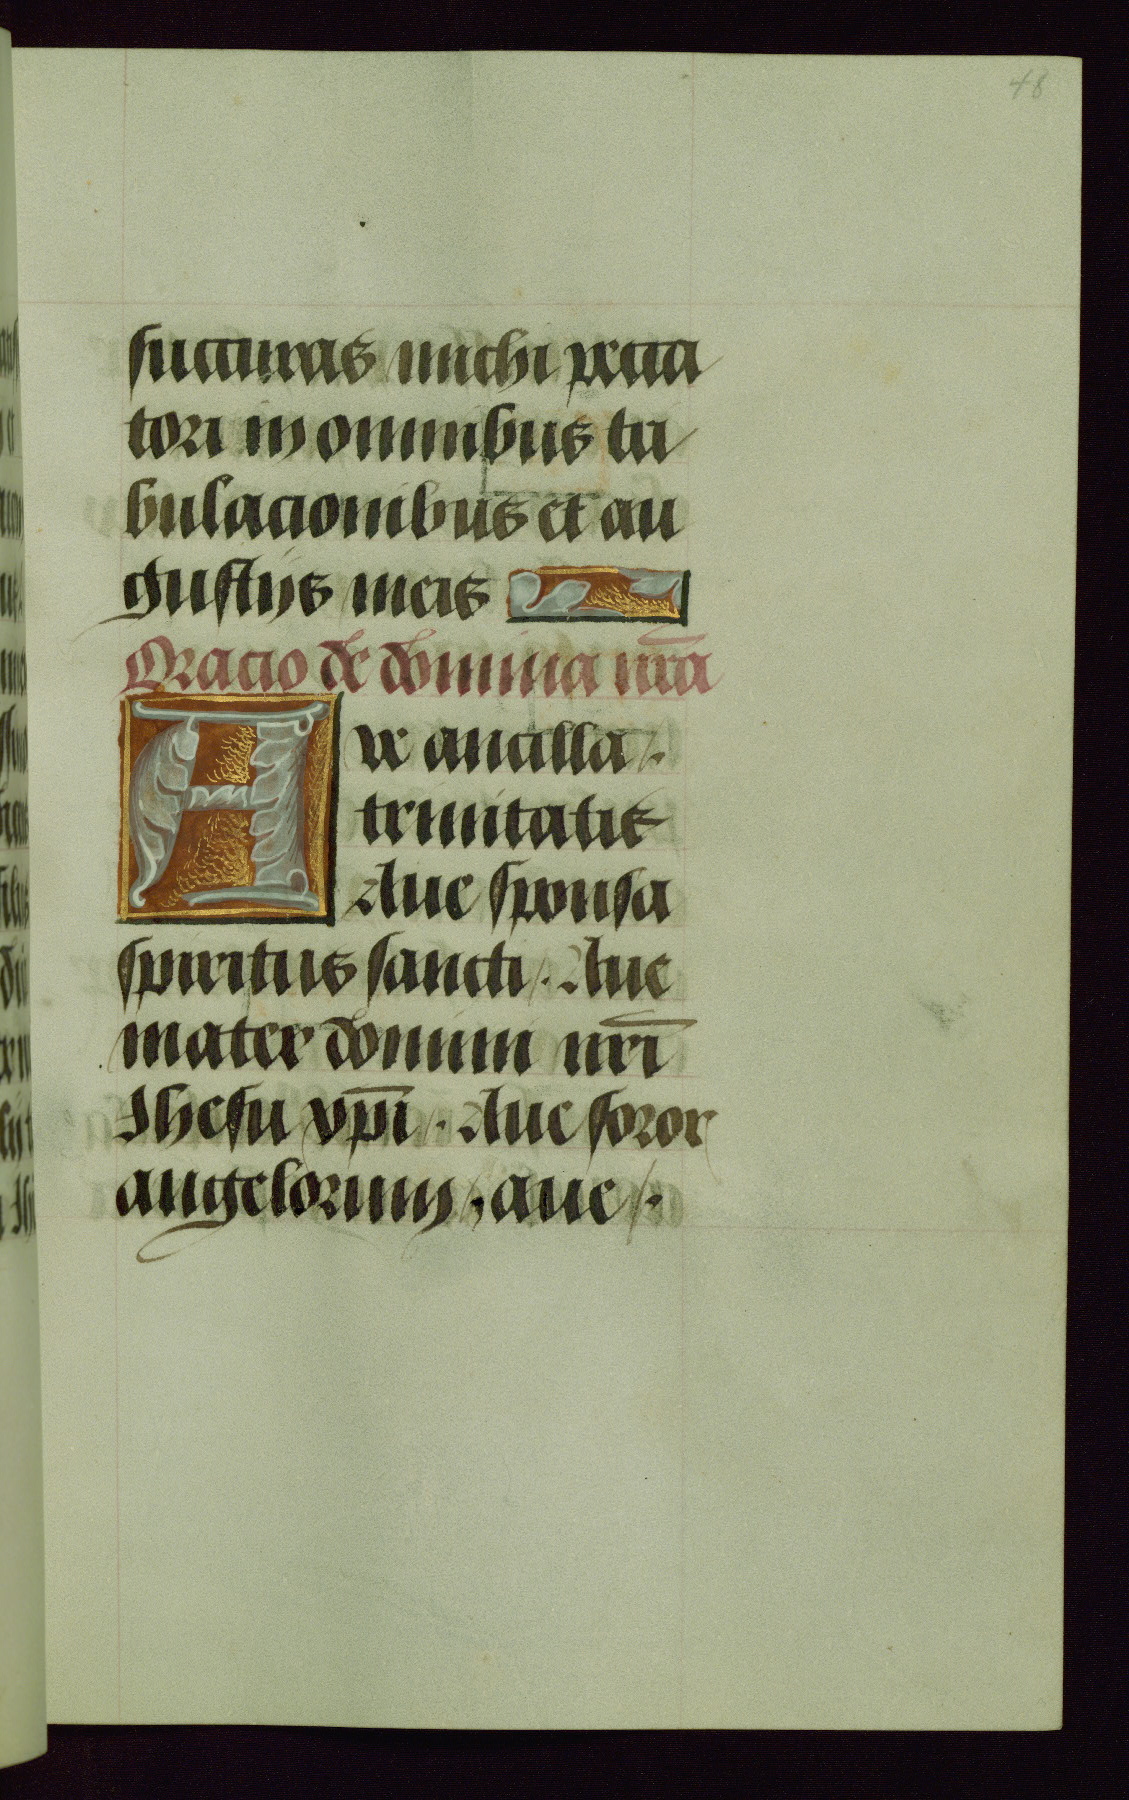 48
succuras michi pecca
tori in omnibus tri
bulacionibus et an
gustijs meis
Oracio de domina nr̄a
Aue ancilla /.
trinitatis
Aue sponsa
spiritus sancti /. Aue
mater domini nr̄i
Ihesu xp̄i . Aue soror
angelorum , aue /.